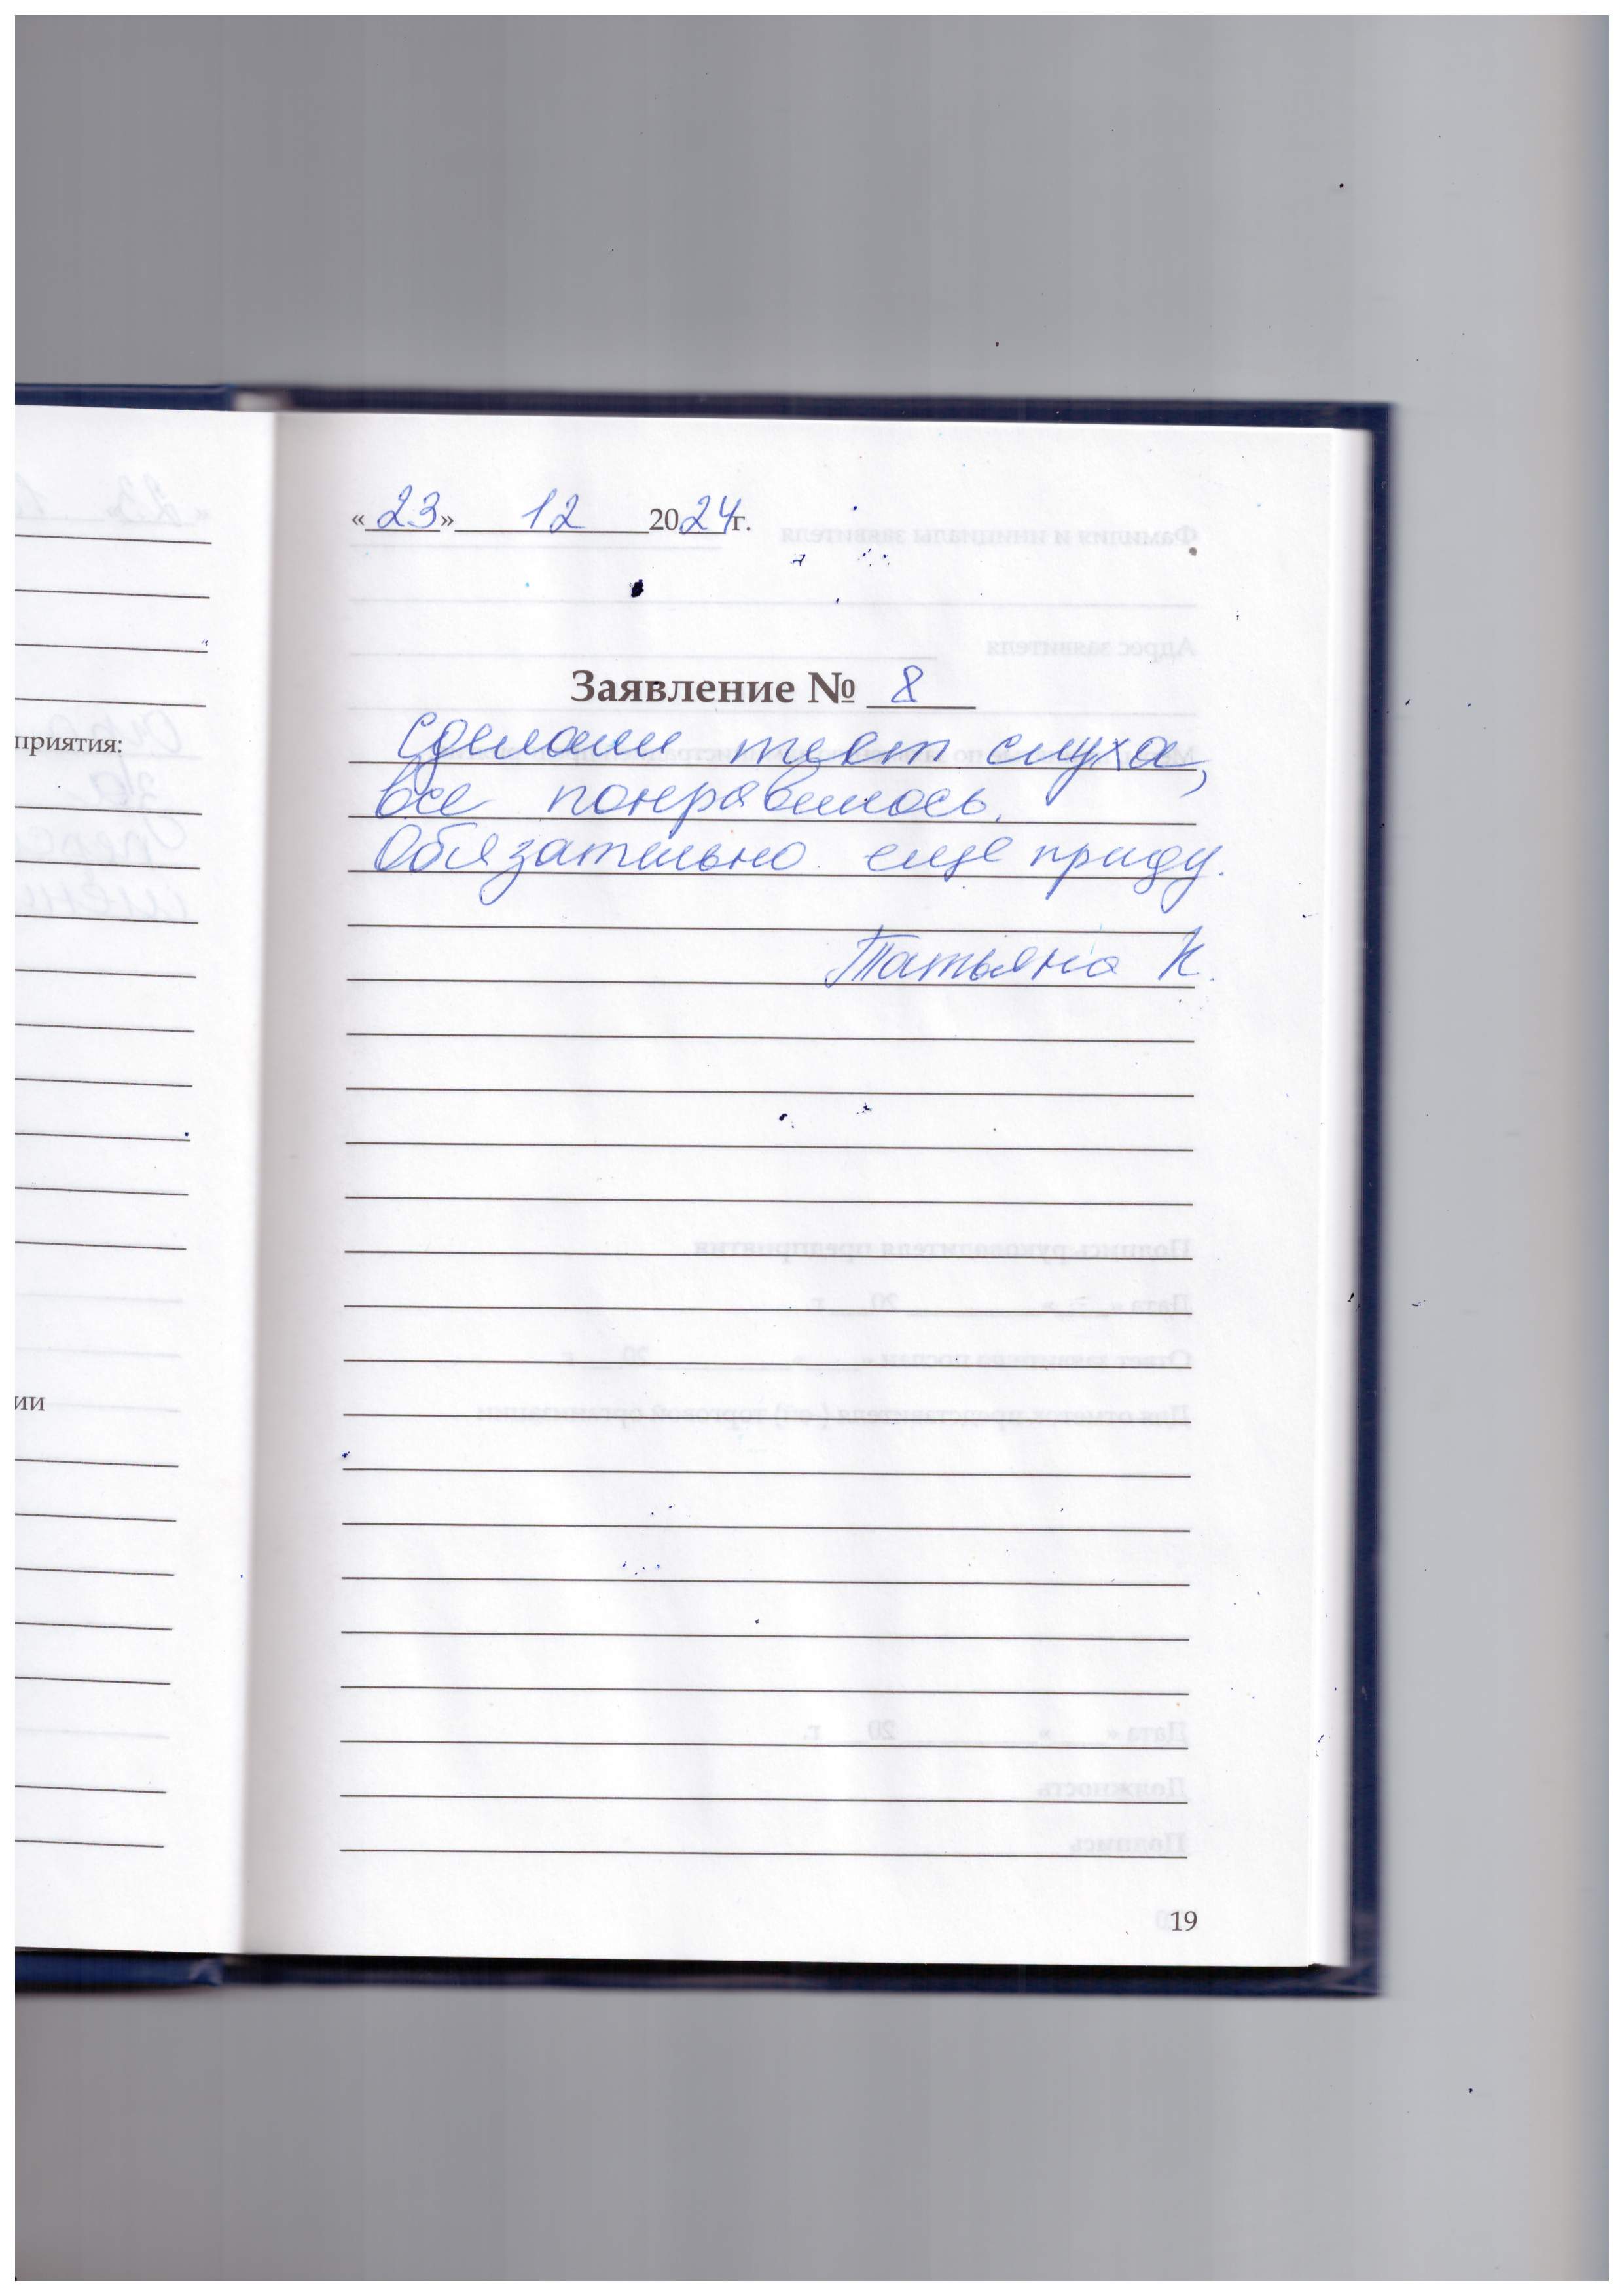 «23» 12 2024г.
Заявление № 8
Сделали тест слуха,
все понравилось.
Обязательно еще приду.
Татьяна К.
приятия:
ии
19